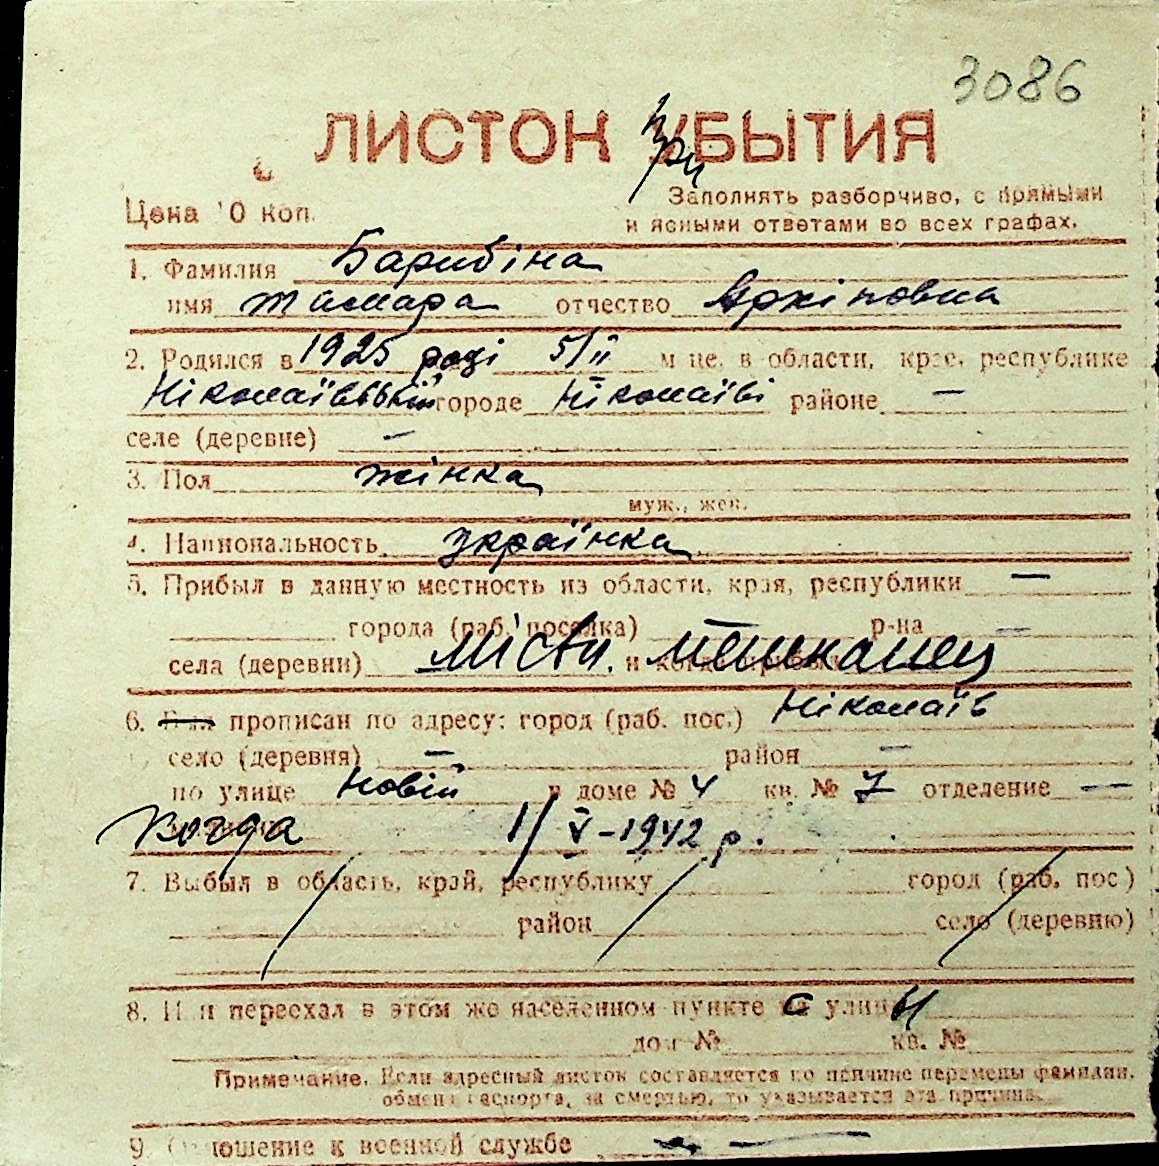 3086
ЛИСТОК прибЫТИЯ
Цена 10 коп.
Заполнять разборчиво, с прямыми
и ясными ответами во всех графах.
1. Фамилия Барибіна
имя Тамара отчество Архіповна
2. Родился в 1925 році 5/II м-це, в области, крае, республике
Ніколаївській городе Ніколаїві районе —
селе (деревне) —
3. Пол жінка
муж., жен.
4. Национальность українка
5. Прибыл в данную местность из области, края, республики —
города (раб. поселка) р-на —
села (деревни) місти. мешканец
6. прописан по адресу: город (раб. пос.) Ніколаїв
село (деревня) — район —
по улице Новій в доме № 4 кв. № 7 отделение —
Когда 1/V-1942 р.
7. Выбыл в область, край, республику город (раб. пос.)
район село (деревню)
8. Или переехал в этом же населенном пункте с улицы
дом № кв. №
Примечание. Если адресный листок составляется по причине перемены фамилии,
обмена паспорта, за смертью, то указывается эта причина.
9. Отношение к военной службе —